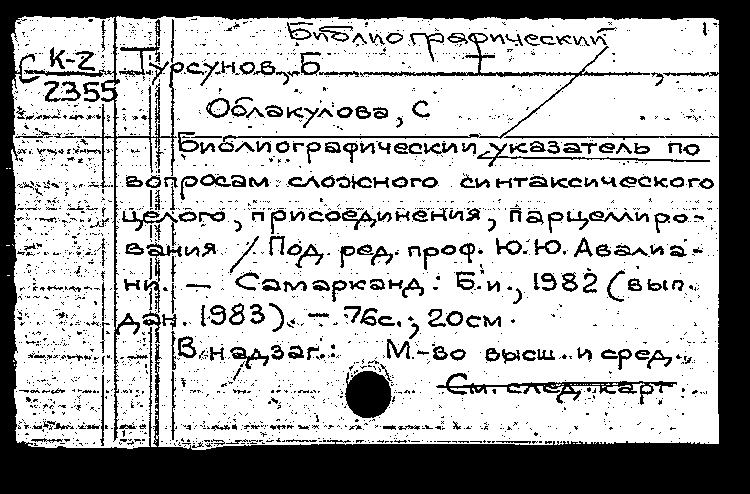 Библиографический
1
С К-2
2355
Турсунов, Б
Облакулова, С
Библиографический указатель по
вопросам сложного синтаксического
целого, присоединения, парцеллиро-
вания / Под ред. проф. Ю.Ю. Авалиа-
ни. — Самарканд: Б.и., 1982 (вып.
дан. 1983). — 76с.; 20см.
В надзаг.: М-во высш. и сред.
См. след. карт.